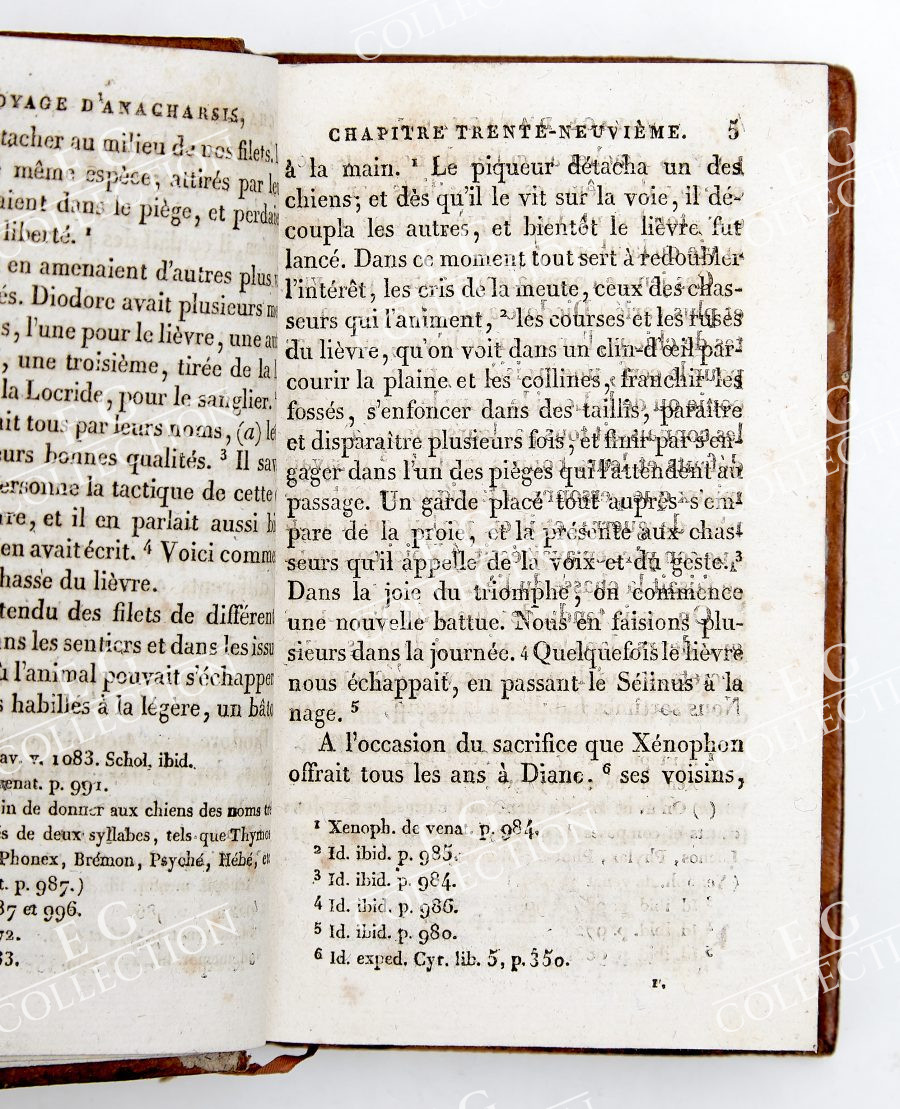 OYAGE D'ANACHARSIS,
tacher au milieu de nos filets.
même espèce, attirés par
aient dans le piège, et
liberté. 1
en amenaient d'autres plus
és. Diodore avait plusieurs
s, l'une pour le lièvre, une
, une troisième, tirée de la
la Locride, pour le sanglier.
ait tous par leurs noms, (a)
eurs bonnes qualités. 3 Il
ersonne la tactique de cette
re, et il en parlait aussi
en avait écrit. 4 Voici comme
hasse du lièvre.
tendu des filets de différen
ns les sentiers et dans les issu
ù l'animal pouvait s'échapper
s habillés à la légère, un bâto
av. v. 1083. Schol. ibid.
venat. p. 991.
in de donner aux chiens des noms
s de deux syllabes, tels que
Phonex, Brémon, Psyché, Hébé,
t. p. 987.)
87 et 996.
72.
33.
CHAPITRE TRENTE-NEUVIÈME. 5
à la main. 1 Le piqueur détacha un des
chiens; et dès qu'il le vit sur la voie, il dé-
coupla les autres, et bientôt le lièvre fut
lancé. Dans ce moment tout sert à redoubler
l'intérêt, les cris de la meute, ceux des chas-
seurs qui l'animent, 2 les courses et les ruses
du lièvre, qu'on voit dans un clin-d'œil par-
courir la plaine et les collines, franchir les
fossés, s'enfoncer dans des taillis, paraître
et disparaître plusieurs fois, et finir par s'en-
gager dans l'un des pièges qui l'attendent au
passage. Un garde placé tout auprès s'em-
pare de la proie, et la présente aux chas-
seurs qu'il appelle de la voix et du geste. 3
Dans la joie du triomphe, on commence
une nouvelle battue. Nous en faisions plu-
sieurs dans la journée. 4 Quelquefois le lièvre
nous échappait, en passant le Sélinus à la
nage. 5
A l'occasion du sacrifice que Xénophon
offrait tous les ans à Diane. 6 ses voisins,
1 Xenoph. de venat. p. 984.
2 Id. ibid. p. 985.
3 Id. ibid. p. 984.
4 Id. ibid. p. 986.
5 Id. ibid. p. 980.
6 Id. exped. Cyr. lib. 5, p. 350.
1.
E G
COLLECTION